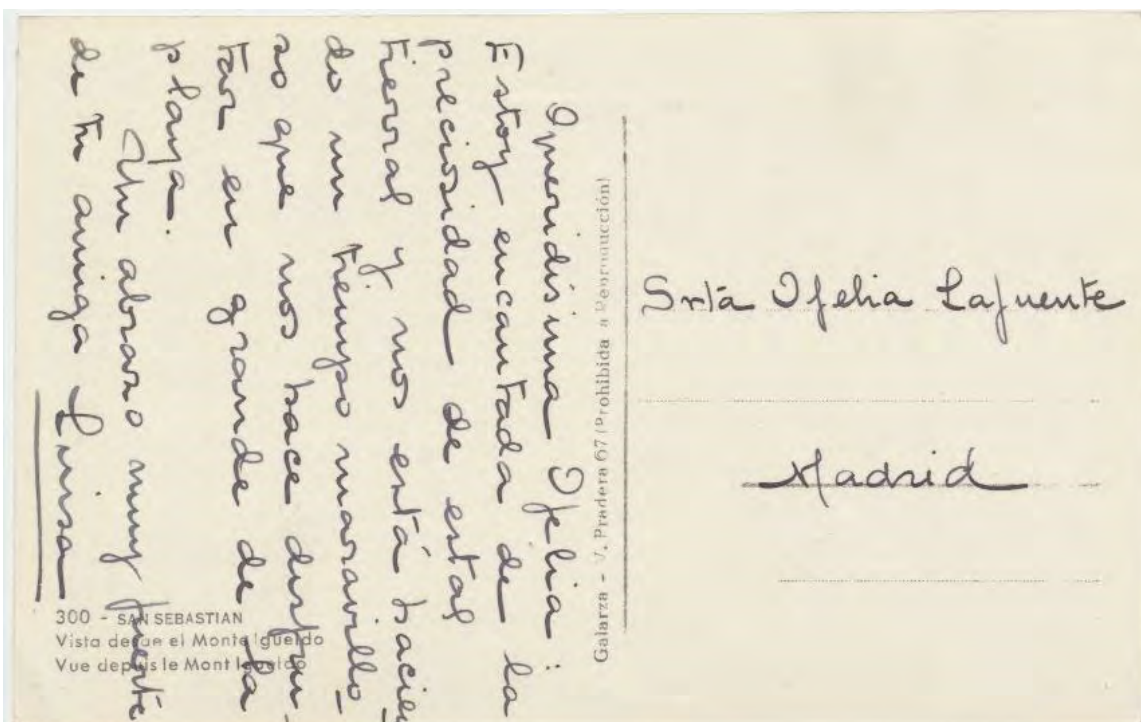 Queridísima Ofelia:
Estoy encantada de la
preciosidad de estas
tierras y nos está hacien
do un tiempo maravillo-
so que nos hace disfru-
tar en grande de la
playa.
Un abrazo muy fuerte
de tu amiga Luisa
300 - SAN SEBASTIAN
Vista desde el Monte Igueldo
Vue depuis le Mont Igueldo
Galarza - V. Pradera 67 (Prohibida a Reproducción)
Srta Ofelia Lafuente
Madrid